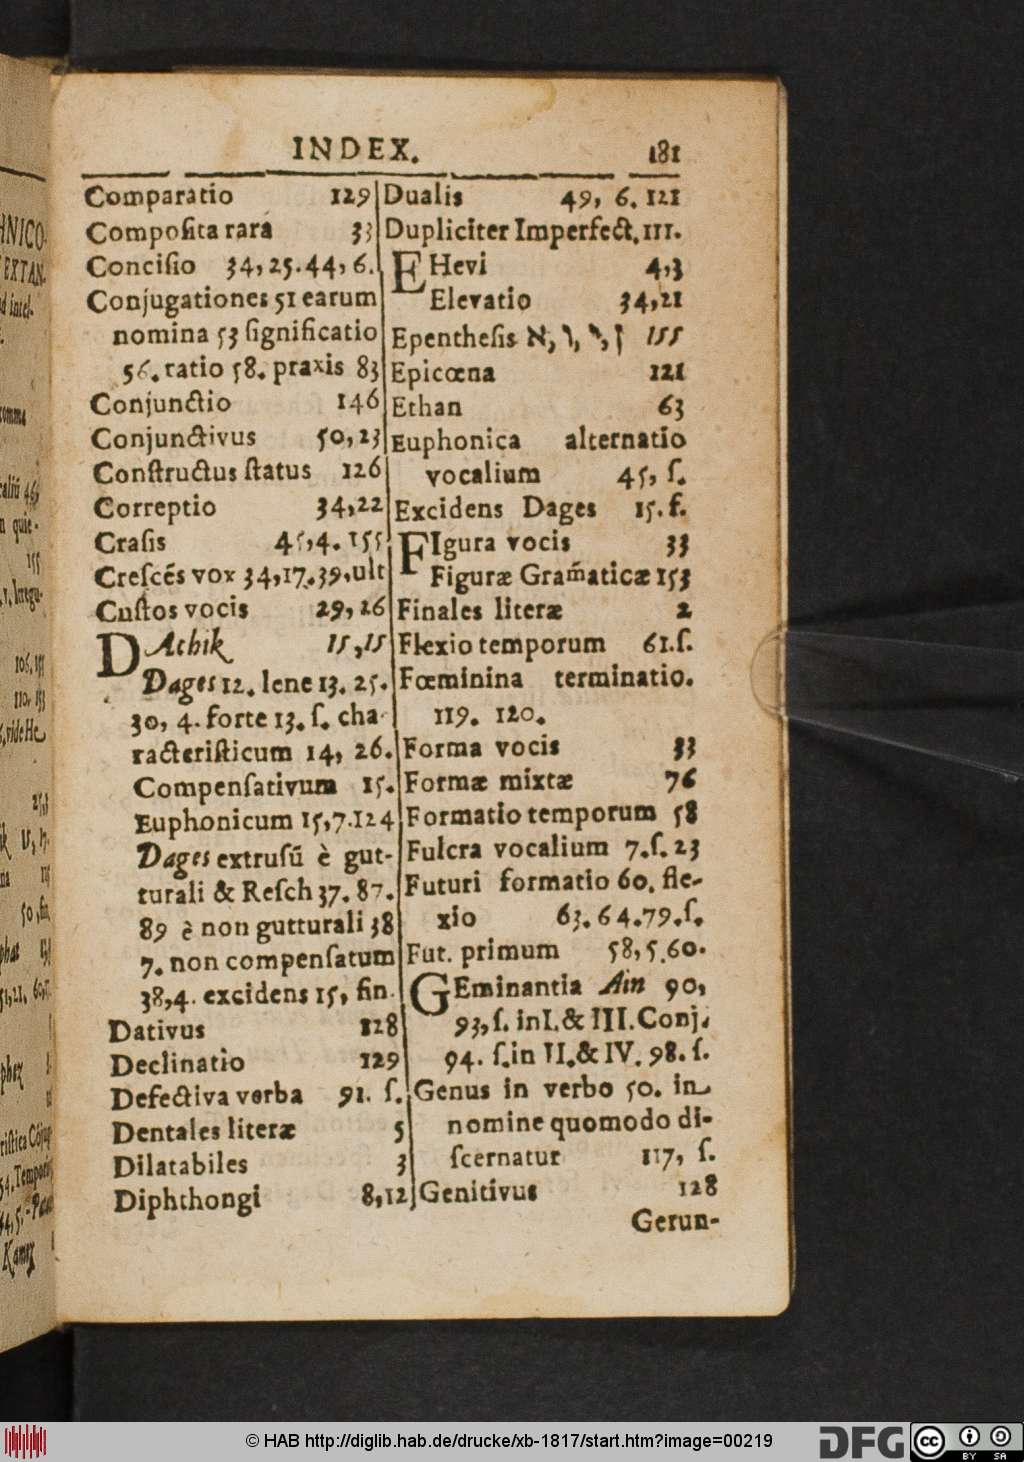 INDEX. 181
Comparatio 129
Compoſita rara 33
Conciſio 34, 25. 44, 6.
Conjugationes 51 earum
nomina 53 ſignificatio
56. ratio 58. praxis 83
Conjunctio 146
Conjunctivus 50, 23
Conſtructus ſtatus 126
Correptio 34,22
Craſis 45,4. 155
Creſcẽs vox 34,17.39,ult
Cuſtos vocis 29, 26
DAchik 15,15
Dages 12. lene 13. 25.
30, 4. forte 13. ſ. cha
racteriſticum 14, 26.
Compenſativum 15.
Euphonicum 15,7.124
Dages extruſũ è gut-
turali & Reſch 37. 87.
89 è non gutturali 38
7. non compenſatum
38,4. excidens 15, fin.
Dativus 128
Declinatio 129
Defectiva verba 91. ſ.
Dentales literæ 5
Dilatabiles 3
Diphthongi 8,12
Dualis 49, 6. 121
Dupliciter Imperfect. 111.
EHevi 4,3
Elevatio 34,21
Epentheſis א, ו, י, ן 155
Epicœna 121
Ethan 63
Euphonica alternatio
vocalium 45, ſ.
Excidens Dages 15. f.
FIgura vocis 33
Figuræ Gram̃aticæ 153
Finales literæ 2
Flexio temporum 61.ſ.
Fœminina terminatio.
119. 120.
Forma vocis 33
Formæ mixtæ 76
Formatio temporum 58
Fulcra vocalium 7.ſ. 23
Futuri formatio 60. fle-
xio 63. 64.79.ſ.
Fut. primum 58, 5.60.
GEminantia Ain 90,
93,ſ. in I. & III. Conj.
94. ſ. in II. & IV. 98. ſ.
Genus in verbo 50. in
nomine quomodo di-
ſcernatur 117, ſ.
Genitivus 128
Gerun-
© HAB http://diglib.hab.de/drucke/xb-1817/start.htm?image=00219
DFG
cc BY SA